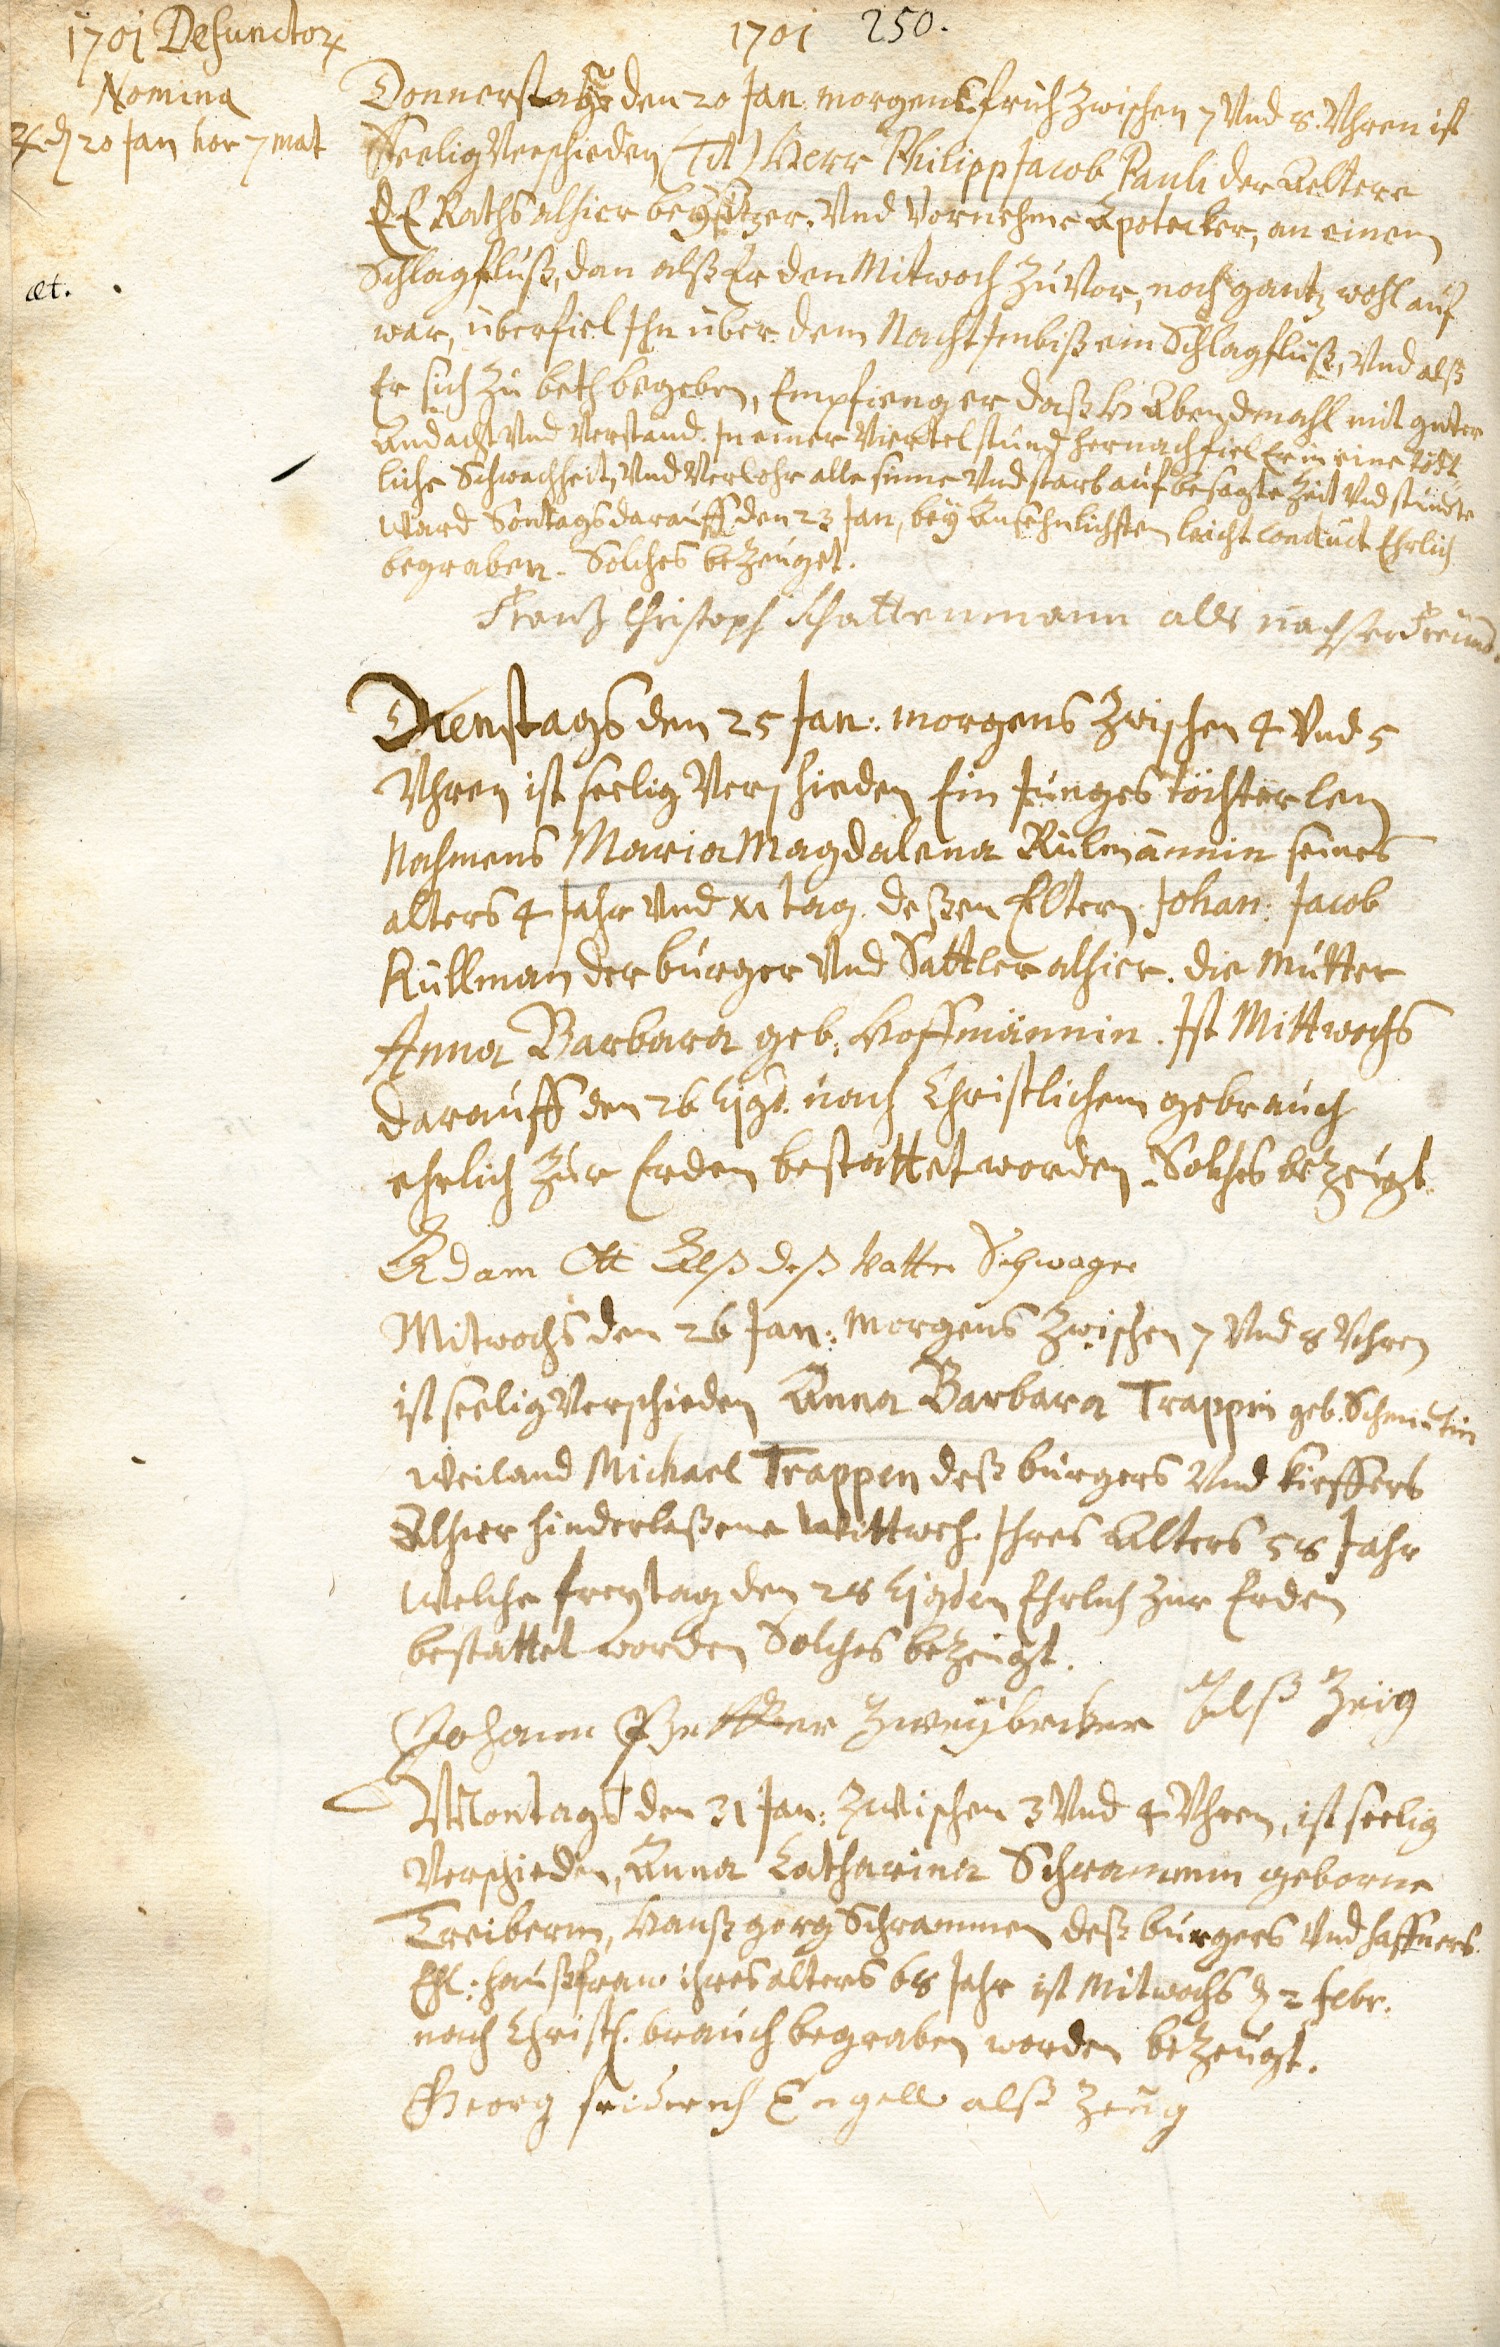 1701 Defunctor
Nomina
1701 250.
♃ d 20 Jan hor 7 mat
Donnerstags den 20 Jan. morgens früh zwischen 7 Vnd 8. Vhren ist
Seelig Verschieden (Tit) Herr Philipp Jacob Pauli der Aeltere
E E Raths alhier beysitzer, Vnd Vornehme Apotecker, an einem
Schlagfluß, dan alß Er den Mitwoch zuvor, noch gantz wohl auf
æt.
war, überfiel Ihn über dem Nacht Imbiß ein Schlagfluß, Vnd alß
Er sich zu beth begeben, Empfienger daß H Abendmahl mit guter
Andacht Vnd Verstand. In einer Viertel stund hernach fiel Er in eine tödt
liche Schwachheit, Vnd Verlohr alle sinne Vnd starb auf besagte Zeit Vnd stunde
Ward Sontags darauff den 23 Jan, bey Ansehnlichsten leicht conduct Ehrlich
begraben. Solches bezeuget.
Frantz Christoph Schattenmann als nachster Freund.
Dienstags den 25 Jan: morgens zwischen 4 Vnd 5
Vhren ist seelig Verschieden Ein Junges töchterlen
Nahmens Maria Magdalena Rülmännin seines
alters 4 Jahr Vnd XI tag. deßen Eltern Johan: Jacob
Rüllman der burger Vnd Sattler alhier. die Mutter
Anna Barbara geb: Hoffmännin. Ist Mittwochs
darauff den 26 hjus. nach Christlichem gebrauch
ehrlich zur Erden bestattet worden. Solches bezeugt.
Adam Ott Alß deß Vatter Schwager
Mitwochs den 26 Jan: Morgens zwischen 7 Vnd 8 Vhren
ist seelig Verschieden Anna Barbara Trappin geb. Schmidtin
Weiland Michael Trappen deß burgers Vnd kieffers
Alhier hinderlaßene Wittweh. Ihres Alters 58 Jahr
Welche freytag den 28 Ehrlich zur Erden
bestattet worden Solches bezeugt.
Johann Zweybrücker Alß Zeüg
Montags den 31 Jan: zwischen 3 Vnd 4 Vhren, ist seelig
Verschieden, Anna Catharina Schrammin geborne
Treiberin, Hanß Georg Schrammen deß burgers Vnd haffners.
Ehl: haußfraw ihres alters 68 Jahr ist Mitwochs d 2 febr:
nach Christl. brauch begraben worden bezeugt.
Georg fridrich Engell alß Zeüg